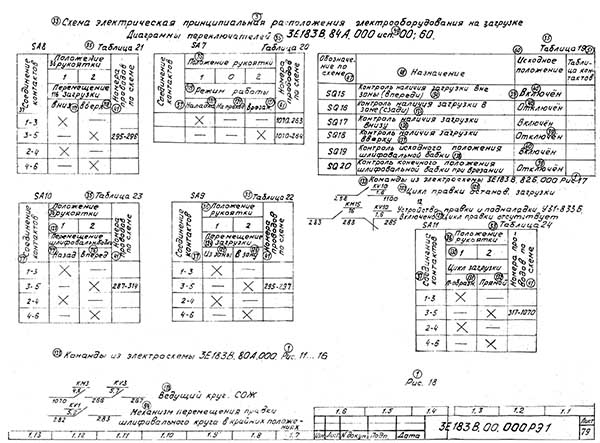 Схема электрическая принципиальная расположения электрооборудования на загрузке
Диаграммы переключателей 3Е183В, 84А, 000 исп 00; 60.
SA8 Таблица 21
Соединение контактов
Положение рукоятки
1 2
Перемещение загрузки
Вниз Вверх
Номера проводов по схеме
1-3
3-5 295-296
2-4
4-6
SA7 Таблица 20
Соединение контактов
Положение рукоятки
1 0 2
Режим работы
Наладка Врезание
Номера проводов по схеме
1070-263
1070-264
Таблица 19
Обозначение по схеме
Назначение
Исходное положение
Таблица контактов
SQ15 Контроль наличия загрузки вне зоны (впереди) Включён
SQ16 Контроль наличия загрузки в зоне (сзади) Отключён
SQ17 Контроль наличия загрузки внизу Включён
SQ18 Контроль наличия загрузки вверху Отключён
SQ19 Контроль исходного положения шлифовальной бабки Включён
SQ20 Контроль конечного положения шлифовальной бабки при врезании Отключён
Команды из электросхемы 3Е183В, 82Б, 000 Рис. 17
Цикл правки останов. загрузки
KV10
1.6
298 1100
KM5
16
KV10
1.6
283 283 285
Устройство правки и подналадки УЗ1-833Б
включено Цикл правки отсутствует
SA10 Таблица 23
Соединение контактов
Положение рукоятки
1 2
Перемещение шлифовальной бабки
Назад Вперед
Номера проводов по схеме
1-3
3-5 287-314
2-4
4-6
SA9 Таблица 22
Соединение контактов
Положение рукоятки
1 2
Перемещение загрузки
Из зоны В зону
Номера проводов по схеме
1-3
3-5 295-297
2-4
4-6
SA11 Таблица 24
Соединение контактов
Положение рукоятки
1 2
Цикл загрузки
П-образн. Прямой
Номера проводов по схеме
1-3
3-5 317-1070
2-4
4-6
Команды из электросхемы 3Е183В, 80А, 000. Рис. 11...16
Рис. 18
KM3
4.6
KV3
5.7
1070 266 267
Ведущий круг. СОЖ
KV1
5.2
282 283
Механизм перемещения пиноли шлифовального круга в крайних положениях
1.6 1.5 1.4 1.3 1.2 1.1
1.13 1.12 1.11 1.10 1.9 1.8 1.7
Изм Лист № докум. Подп. Дата
3Е183В, 00, 000 РЭ1
Лист
79